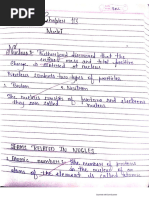 Chapter 13
Nuclei
Rutherford discovered that the
entire mass and total positive
charge is enclosed at nucleus
Nucleus contents two types of particles
Proton
Neutron
The nucleus consists of protons and
they are called nucleus
TERMS RELATED TO NUCLEI
Atomic number: The number of protons
in the nucleus of an
atom of the element is called atomic